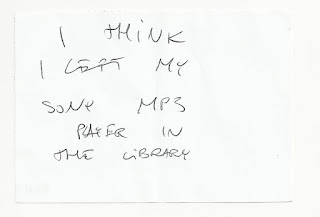 I THINK
I LEFT MY
SONY MP3
PLAYER IN
THE LIBRARY